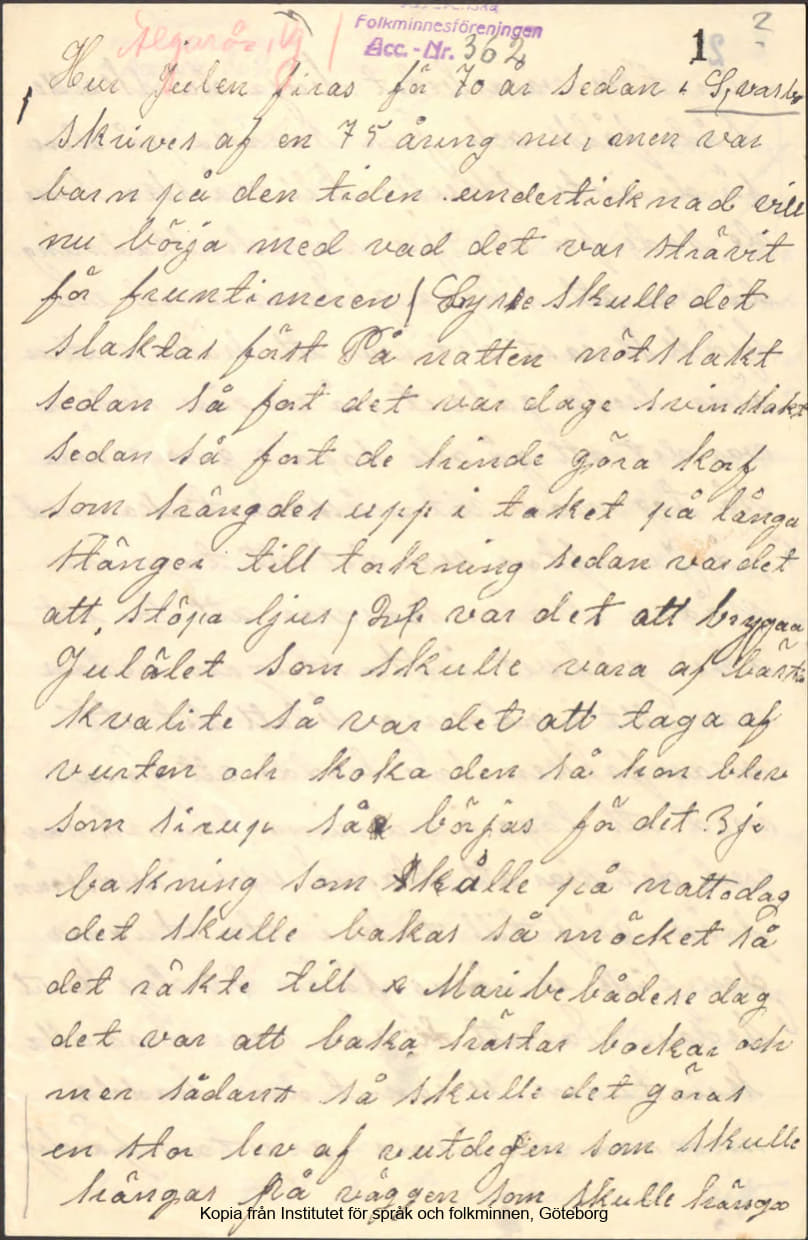 Folkminnesföreningen
Acc.-Nr. 362
1
2
?
Hur Julen firas för 70 år sedan
skrives af en 75 åring nu, men var
barn på den tiden underticknad vill
nu börja med vad det var strävit
för fruntimeren skulle det
slaktas först På natten nötslakt
sedan så fort det var dage svinslakt
sedan så fort de hinde göra korf
som hängdes upp i taket på långa
stänger till torkning sedan var det
att stöpa ljus, var det att brygaa
Julölet som skulle vara af bästa
kvalite så var det att taga af
vurten och koka den så hon blev
som sirup så börjas för det 3je
bakning som skulle på natt o dag
det skulle bakas så möcket så
det räkte till Maribebådese dag
det var att baka hästar bockar och
mer sådant så skulle det göras
en stor lev af vutdegen som skulle
hängas på väggen som skulle hänga
Kopia från Institutet för språk och folkminnen, Göteborg